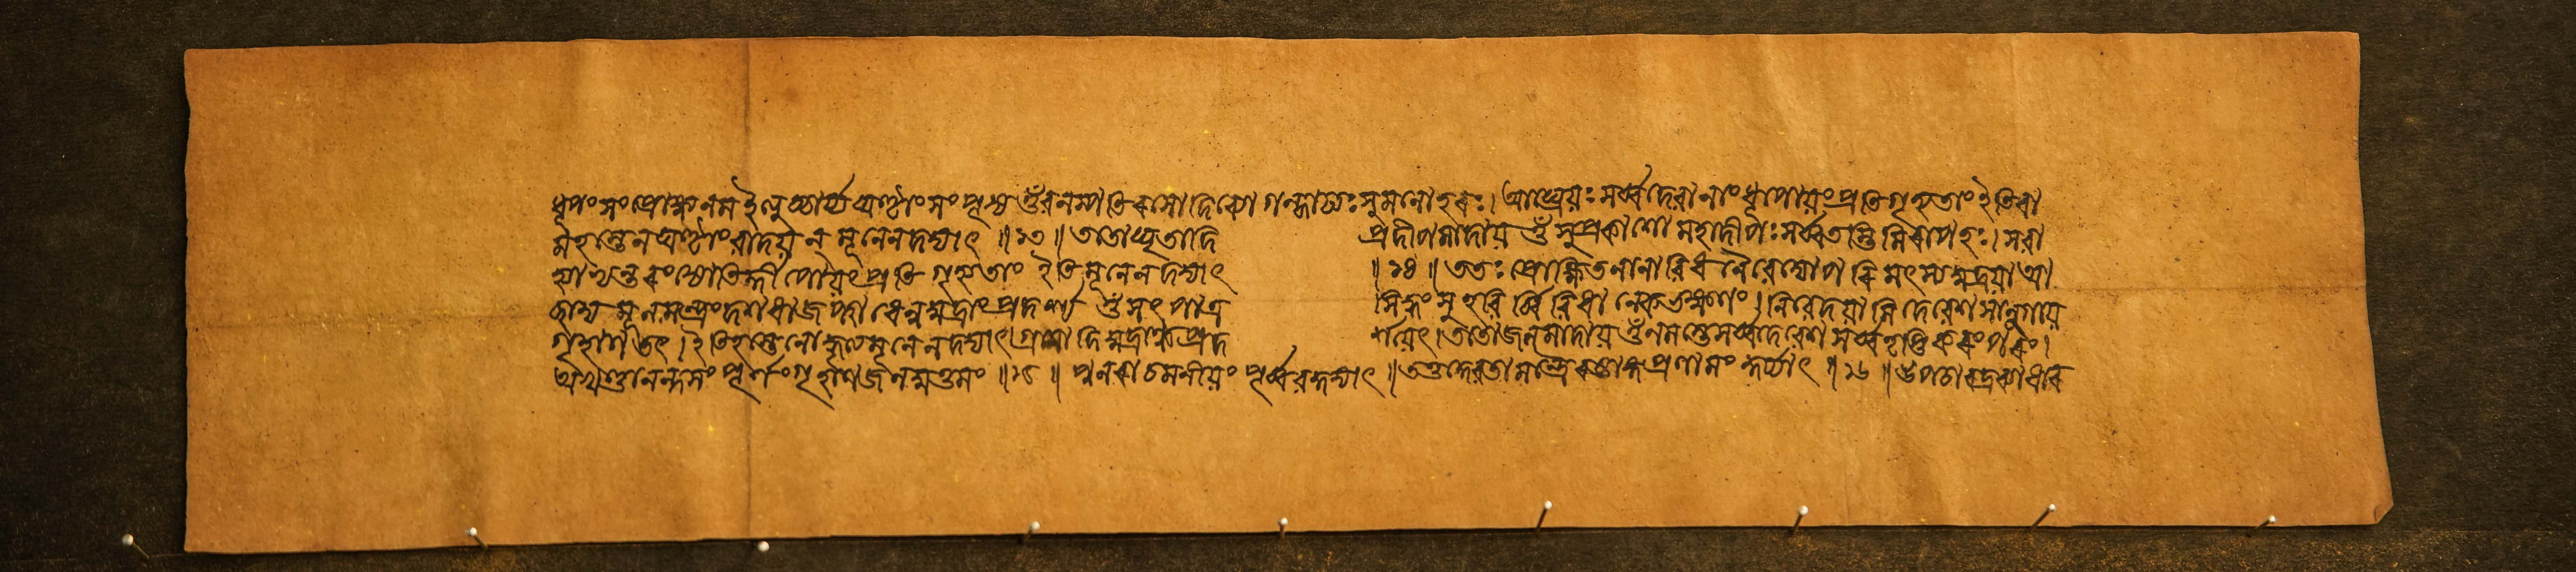 ধূপং সংপ্রোক্ষ্য নম ইত্যুচ্চার্য্য ঘণ্টাং সংপূজ্য ওঁ বনস্পতি ৰসো দিব্যো গন্ধাঢ্যঃ সুমনোহৰঃ। আঘ্রেয়ঃ সর্ব্বদেৱানাং ধূপোয়ং প্রতিগৃহ্যতাং ইতি ৱা
মহস্তেন ঘণ্টাং ৱাদয়ন্ মূলেন দদ্যাৎ ॥ ১৩ ॥ ততো ঘৃতাদি প্রদীপমাদায় ওঁ সুপ্রকাশো মহাদীপঃ সর্ব্বতস্তিমিৰাপহঃ। সৱা
হ্যাভ্যন্তৰং জ্যোতির্দ্দীপোয়ং প্রতিগৃহ্যতাং ইতি মূলেন দদ্যাৎ ॥ ১৪ ॥ ততঃ প্রোক্ষিত নানাৱিধ নৈৱেদ্যোপৰি মৎস্যমুদ্রয়া আ
মূলমন্ত্রং দশধা জপ্ত্বা ধেনুমুদ্রাং প্রদর্শ্য ওঁ সৎপাত্র সিদ্ধং সুহৱির্ৱিৱিধানেকভক্ষণং। নিৱেদয়ামি দেৱেশ সানুগায়
গৃহাণ তৎ। ইতি হস্তেনোৎসৃজ্য মূলেন দদ্যাৎ গ্রাসাদি মুদ্রাশ্চ প্রদ র্শয়েৎ। ততো জলমাদায় ওঁ নমস্তে সর্ব্বদেৱেশ সর্ব্বতৃপ্তিকৰং পৰং।
অখণ্ডানন্দসংপূর্ণং গৃহাণ জলমুত্তমং ॥ ১৫ ॥ পুনৰাচমনীয়ং পূর্ব্বৱদ্দদ্যাৎ ॥ তত্তদ্দেৱতামন্ত্রেৰষ্টাঙ্গপ্রণামং কুর্য্যাৎ ॥ ১৬ ॥